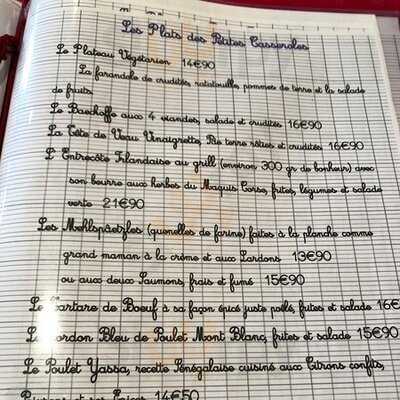 Les Plats des Petites Casseroles
Le Plateau Végétarien 14€90
La farandole de crudités, ratatouille, pommes de terre et la salade
de fruits
Le Baeckoffe aux 4 viandes, salade et crudités 16€90
La Tête de Veau Vinaigrette, Pommes de terre rôties et crudités 16€90
L'Entrecôte Irlandaise au grill (environ 300 gr de bonheur) avec
son beurre aux herbes du Maquis Corse, frites, légumes et salade
verte 21€90
Les Mehlspäetzles (quenelles de farine) faites à la planche comme
grand maman à la crème et aux Lardons 13€90
ou aux deux Saumons, frais et fumé 15€90
Le Tartare de Boeuf à sa façon épicé juste poêlé, frites et salade 16€
Le Cordon Bleu de Poulet Mont Blanc, frites et salade 15€90
Le Poulet Yassa, recette Sénégalaise cuisiné aux Citrons confits,
et ses Epices 14€50